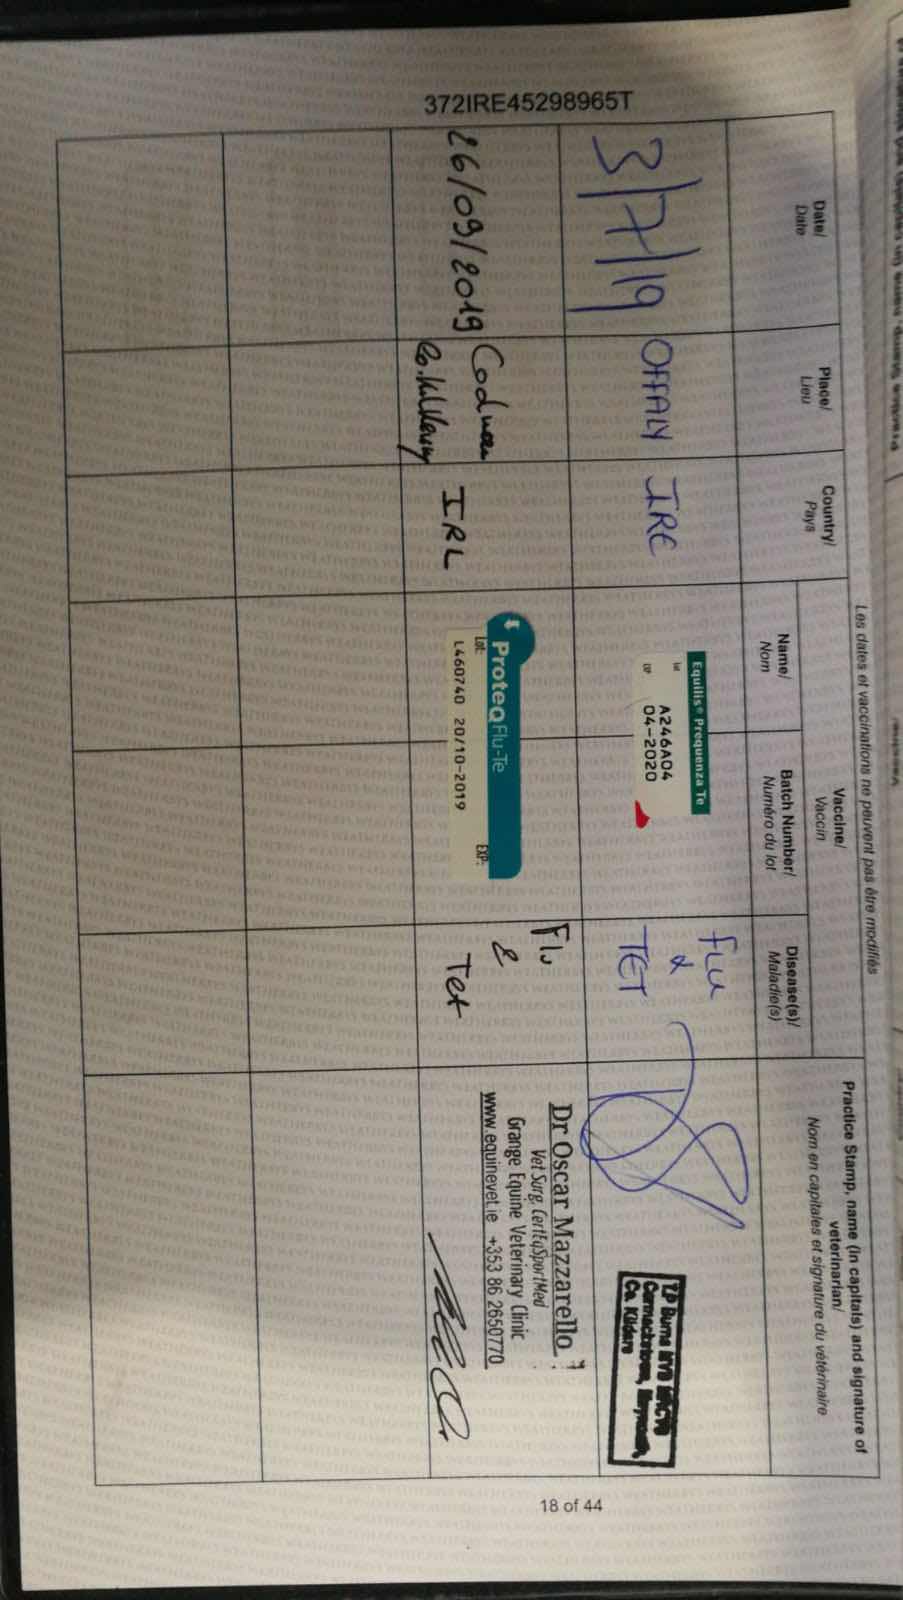 372IRE45298965T
Les dates et vaccinations ne peuvent pas être modifiés
Date/
Date
Place/
Lieu
Country/
Pays
Vaccine/
Vaccin
Name/
Nom
Batch Number/
Numéro du lot
Disease(s)/
Maladie(s)
Practice Stamp, name (in capitals) and signature of
veterinarian/
Nom en capitales et signature du vétérinaire
3/7/19
OFFALY
IRE
Equilis® Prequenza Te
Lot A246A04
EXP 04-2020
FLU
&
TET
T.P Burns MVB MRCVS
Maynooth,
Co. Kildare
26/09/2019
Co. Kilkenny
IRL
ProteqFlu-Te
Lot: EXP:
L460740 20/10-2019
Flu
&
Tet
Dr Oscar Mazzarello
Vet Surg, CertEqSportMed
Grange Equine Veterinary Clinic
www.equinevet.ie +353 86 2650770
18 of 44